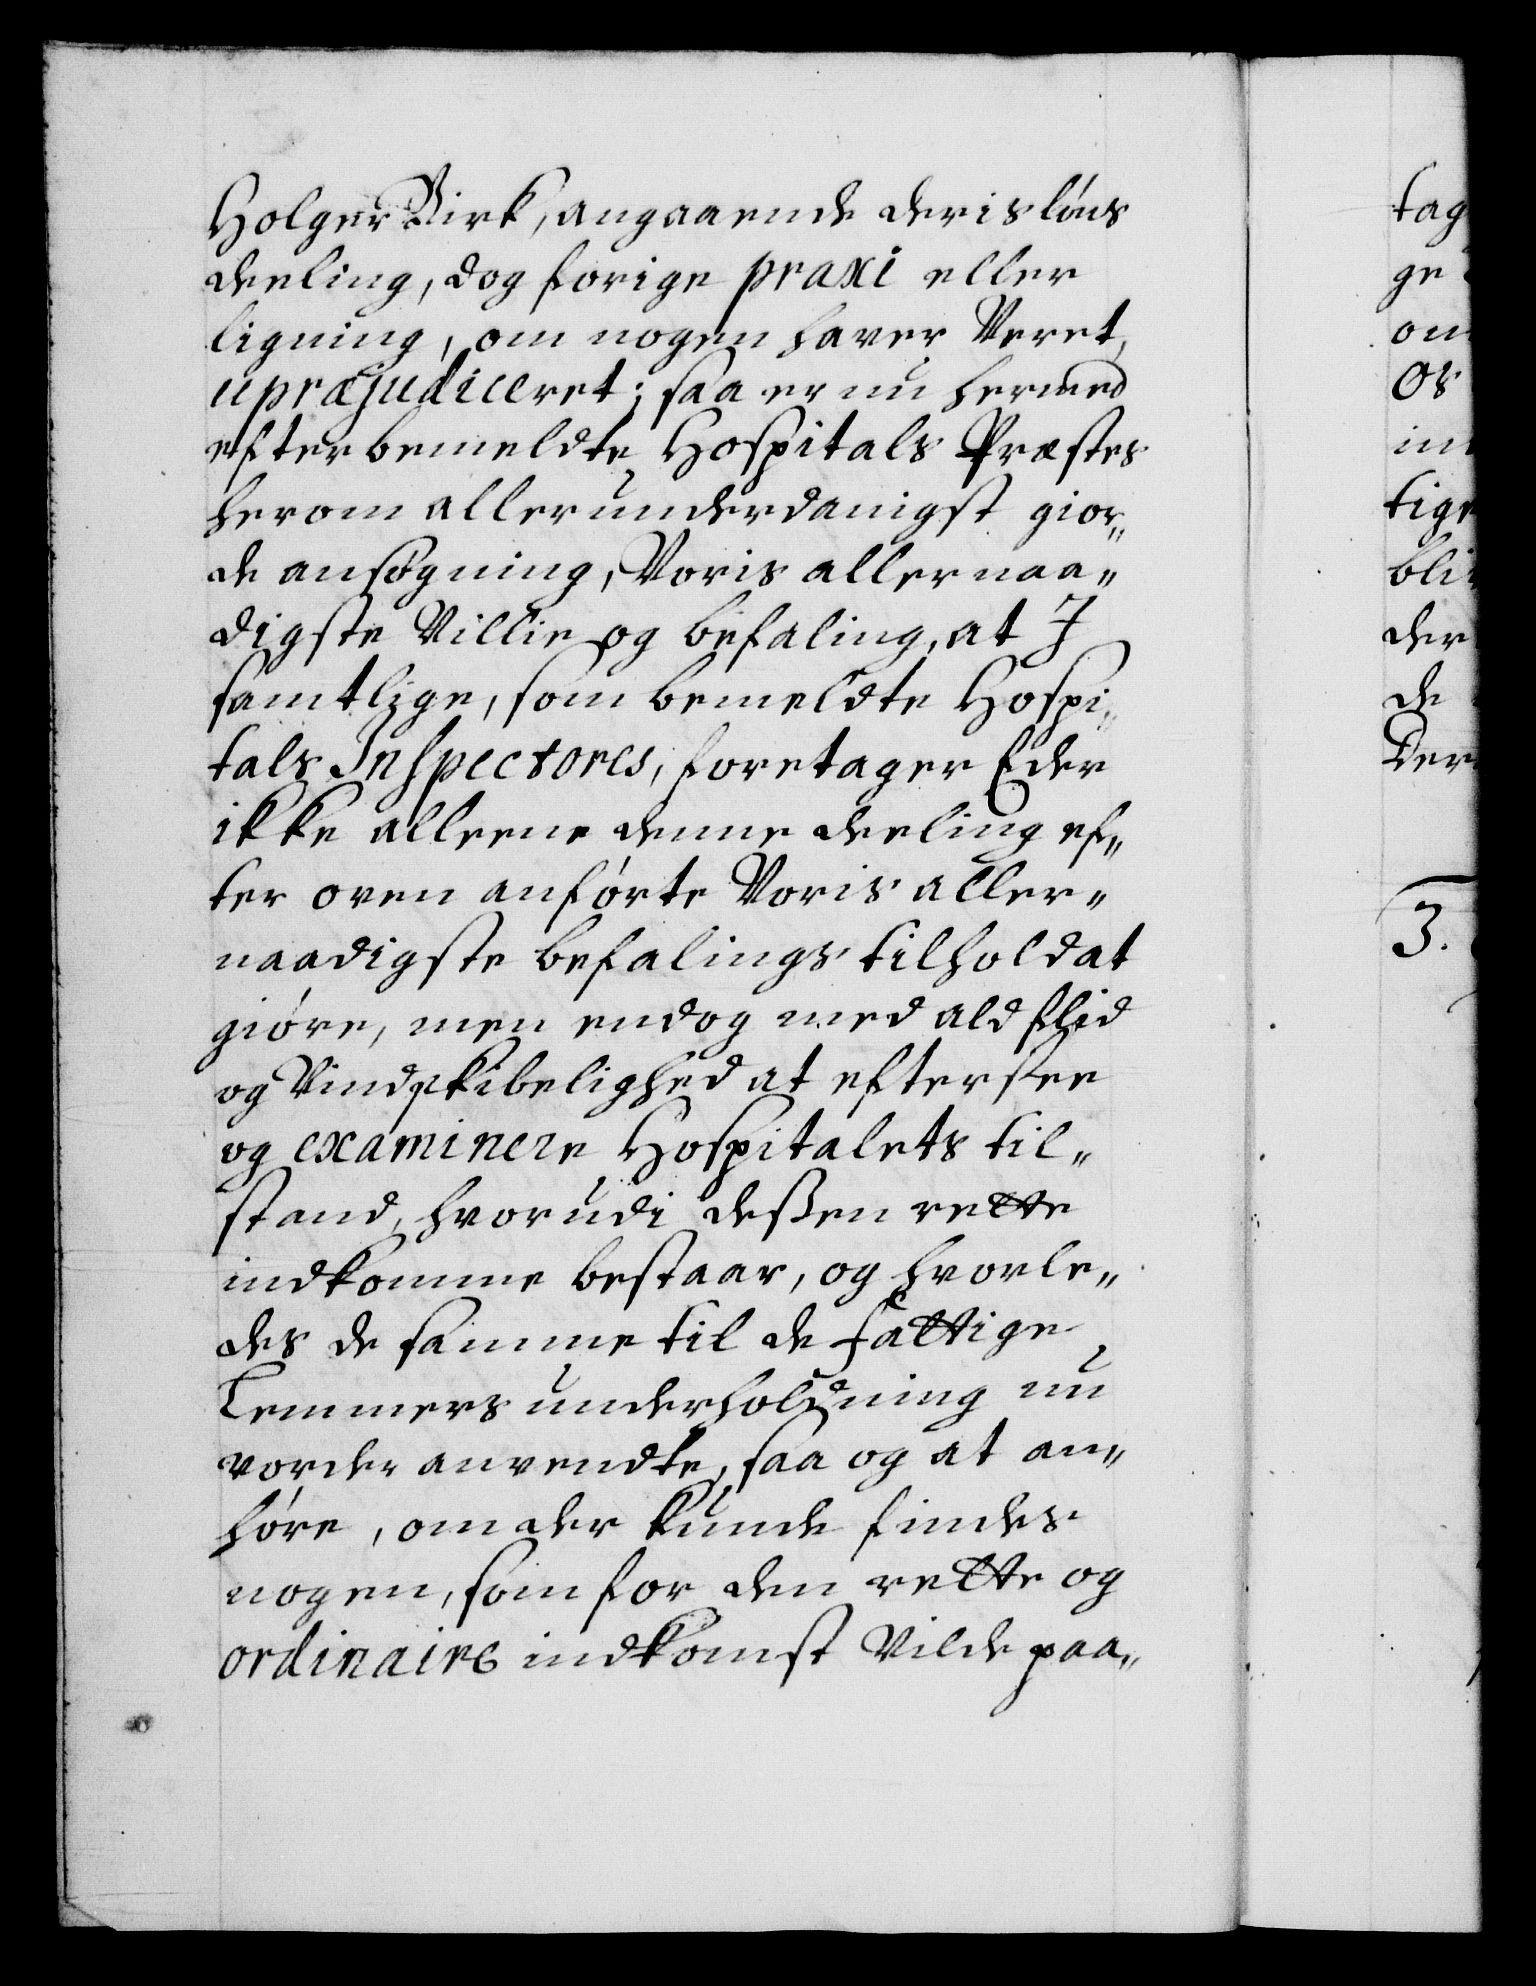 Holger Birk, angaaende deris løns
deeling, dog forige praxi eller
ligning, om nogen haver Veret,
upræjudiceret; saa er nu hermed
efter bemeldte Hospitals Præstes
herom allerunderdanigst gior„
de ansøgning, Voris allernaa„
digste Villie og befaling, at I
samtlige, som bemeldte Hospi„
tals Inspectores, foretager Eder
ikke alleene denne deeling ef„
ter oven anførte Voris aller„
naadigste befalings tilhold at
giøre, men endog med ald flid
og Vindskibelighed at eftersee
og examinere Hospitalets til„
stand, hvorudi deßen rette
indkomme bestaar, og hvorle„
des de samme til de fattige
Lemmers underholdning nu
vorder anvendte, saa og at an„
høre, om der kunde findes
nogen, som for den rette og
ordinaire indkomst Vilde paa„
tag
ge
om
Os
tige
bli
der
de
Der
3.